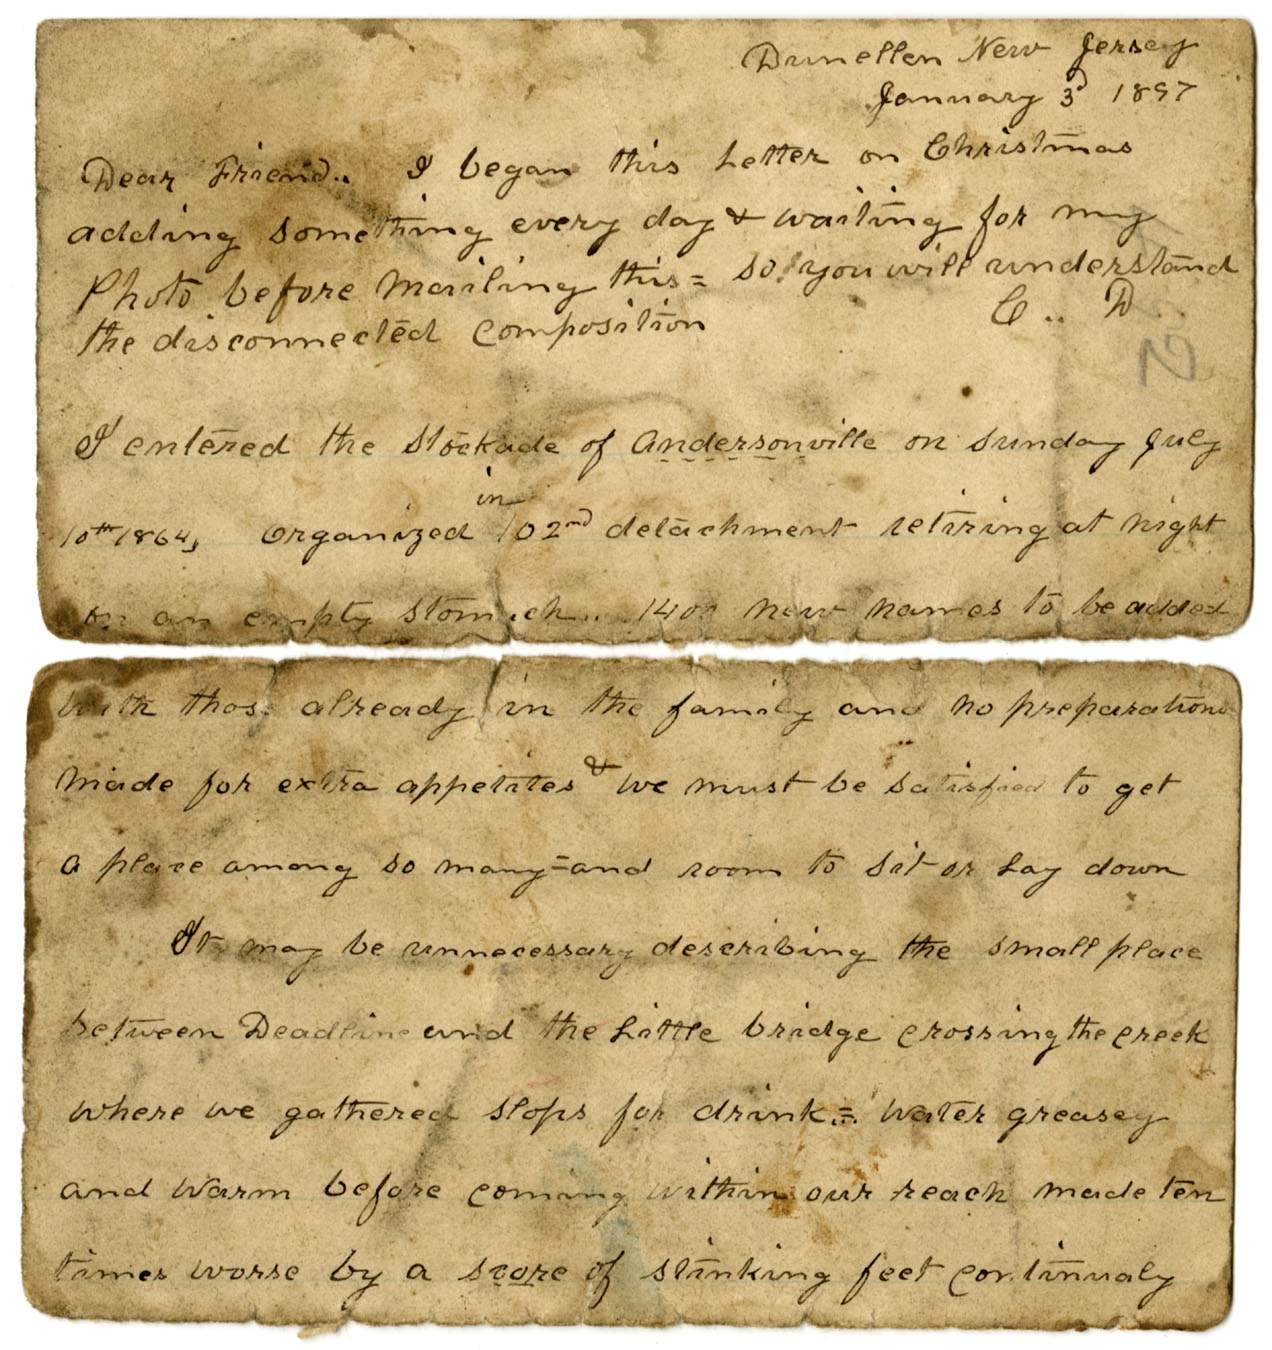 Dunellen New Jersey
January 3d 1897
Dear Friend.. I began this Letter on Christmas
adding something every day & waiting for my
Photo before Mailing this = so you will understand
the disconnected composition
C .. D ..
I entered the stockade of Andersonville on Sunday July
10th 1864, Organized in 102nd detachment retiring at night
on an empty stomach.. 1400 new names to be added
with those already in the family and no preparations
made for extra appetites & we must be satisfied to get
a place among so many = and room to sit or lay down
It may be unnecessary describing the small place
between Deadline and the Little bridge crossing the creek
where we gathered slops for drink = Water greasey
and Warm before coming within our reach made ten
times worse by a score of stinking feet continualy